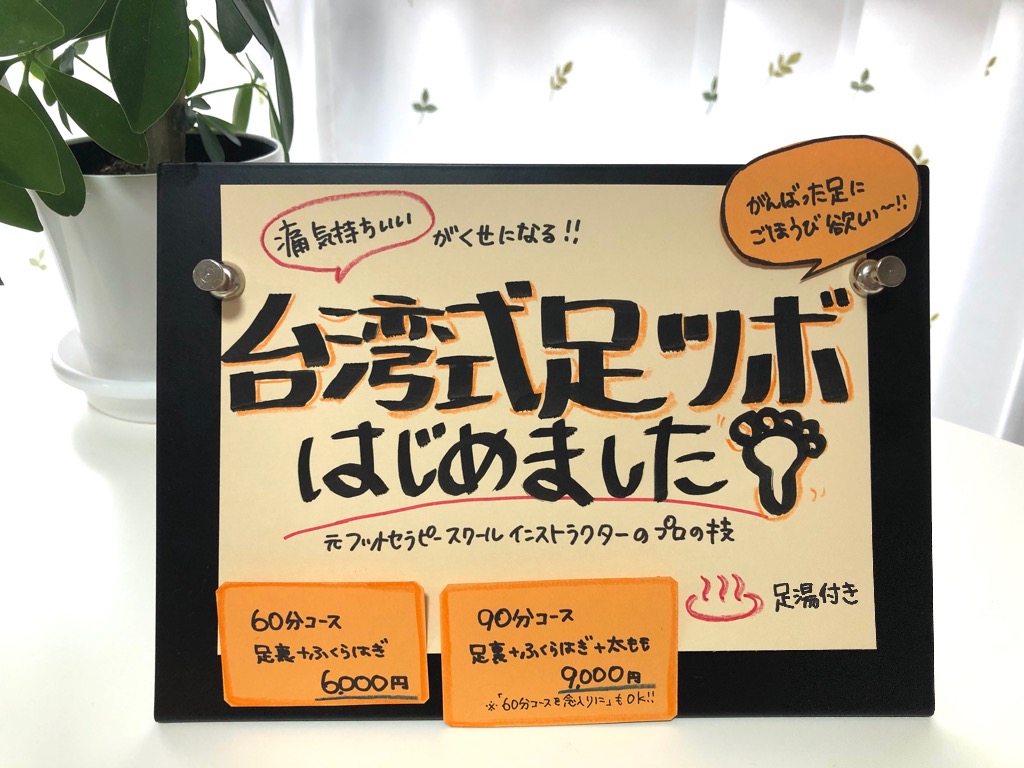 痛気持ちいい がくせになる!!
がんばった足に
ごほうび欲しい〜!!
台湾式足ツボ
はじめました
元フットセラピースクールインストラクターのプロの技
足湯付き
60分コース
足裏+ふくらはぎ
6,000円
90分コース
足裏+ふくらはぎ+太もも
9,000円
※「60分コースを念入りに」もOK!!